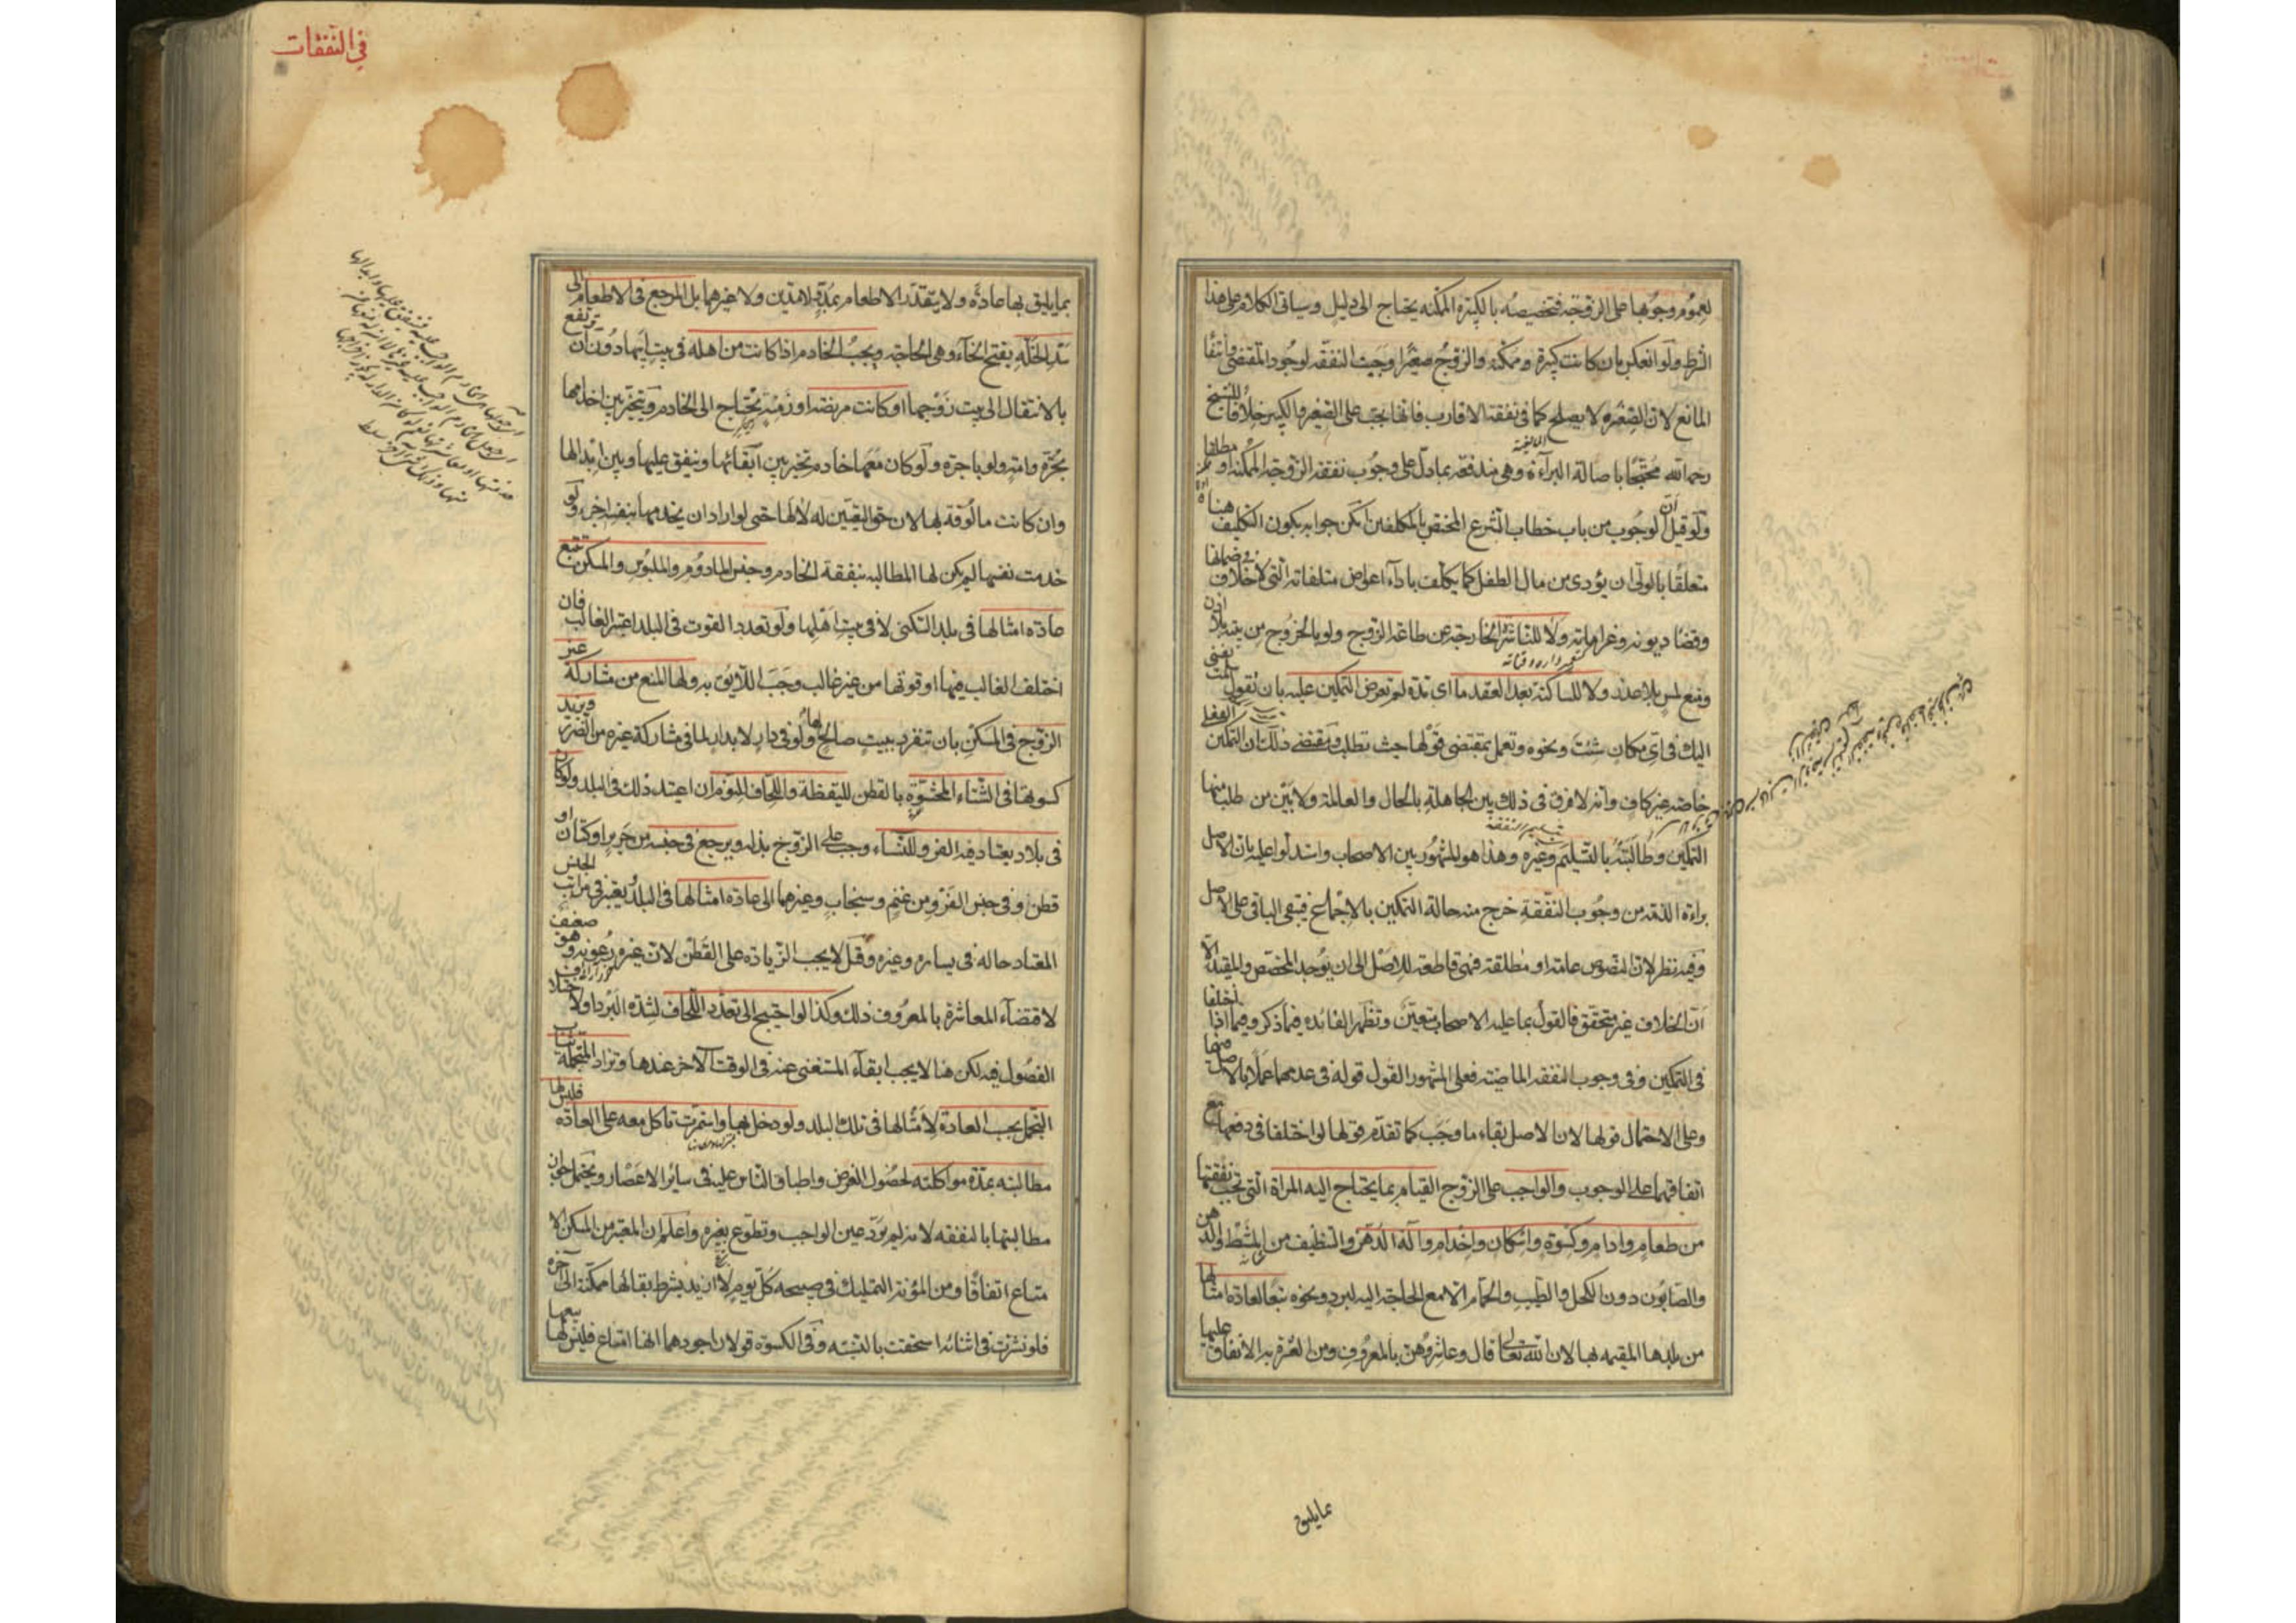 لعموم وجوبها على الزوجة فتخصيصه بالكبيرة الممكنة يحتاج الى دليل وسياتى الكلام على هذا
الشرط ولو انعكس بان كانت كبيرة ممكنة والزوج صغيرا وجبت النفقة لوجود المقتضى وانتفا
المانع لان الصغر لا يصلح كما فى نفقة الاقارب فانها تجب على الصغير والكبير خلافا للشيخ
رحمه الله محتجا باصالة البراءة وهى مندفعة بما دل على وجوب نفقة الزوجة الممكنة او مطلقا
ولو قيل ان الوجوب من باب خطاب الشرع المختص بالمكلفين امكن جوابه بكون التكليف هنا
متعلقا بالولى ان يؤدى من مال الطفل كما يكلف باداء اعواض متلفاته التى لا خلاف فى ضمانها
وقضا ديونه وغراماته ولا للناشزة الخارجة عن طاعة الزوج ولو بالخروج من بيته بلا اذن
ومنع لمس بلا عذر ولا للساكتة بعد العقد ما اى مدة لم تعرض التمكين عليه بان تقول سلمت نفسى
اليك فى اى مكان شئت ونحوه وتعمل بمقتضى قولها حيث تطلب ومقتضى ذلك ان التمكين الفعلى
خاصة غير كاف وانه لا فرق فى ذلك بين الجاهلة بالحال والعالمة ولا بين من طلب منها
التمكين وطالبته بالتسليم وغيره وهذا هو المشهور بين الاصحاب واستدلوا عليه بان الاصل
براءة الذمة من وجوب النفقة خرج منه حالة التمكين بالاجماع فيبقى الباقى على الاصل
وفيه نظر لان النصوص عامة او مطلقة فهى قاطعة للاصل الى ان يوجد المخصص والمقيد الا
ان الخلاف غير متحقق فالقول بما عليه الاصحاب متعين وتظهر الفائدة فيما ذكر وفيما اذا اختلفا
فى التمكين وفى وجوب النفقة الماضية فعلى المشهور القول قوله فى عدمهما عملا بالاصل فيهما
وعلى الاحتمال قولها لان الاصل بقاء ما وجب كما تقدم قولها لو اختلفا فى دفعها مع
اتفاقهما على الوجوب والواجب على الزوج القيام بما يحتاج اليه المراة التى تجب نفقتها
من طعام وادام وكسوة واسكان واخدام وآلة الدهن والتنظيف من المشط والدهن
والصابون دون الكحل والطيب والحمام الا مع الحاجة اليه لبرد ونحوه تبعا لعادة امثالها
من بلدها المقيمة بها لان الله تعالى قال وعاشروهن بالمعروف ومن العشرة به الانفاق عليها
بما يليق
فى النفقات
بما يليق بها عادة ولا يتقدر الاطعام بمد ولا مدين ولا غيرهما بل المرجع فى الاطعام الى
سد الخلة بفتح الخاء وهى الحاجة ويجب الخادم اذا كانت من اهله فى بيت ابيها دون ان ترتفع
بالانتقال الى بيت زوجها او كانت مريضة او زمنة تحتاج الى الخادم ويتخير بين اخدامها
بحرة وامة ولو باجرة ولو كان معها خادم تخير بين ابقائها وينفق عليها وبين ابدالها
وان كانت مالوفة لها لان حق التعيين له لا لها حتى لو اراد ان يخدمها بنفسه اجزء ولو
خدمت نفسها لم يكن لها المطالبة بنفقة الخادم وجنس المادوم والملبوس والمسكن تتبع
عادة امثالها فى بلد السكنى لا فى بيت اهلها ولو تعدد القوت فى البلد اعتبر الغالب فان
اختلف الغالب فيها او قوتها من غير غالب وجب اللايق به ولها المنع من مشاركة غير
الزوج فى المسكن بان تنفرد ببيت صالح لها ولو فى دار لا بدار لما فى مشاركة غيره من الضرر ويزيد
كسوتها فى الشتاء المحشوة بالقطن لليقظة واللحاف للنوم ان اعتيد ذلك فى البلد ولو كان
فى بلاد يعتاد فيه الفرو للنساء وجب على الزوج بذله ويرجع فى جنسه من حرير او كتان او
قطن او فى جنس الفرو من غنم وسنجاب وغيرهما الى عادة امثالها فى البلد ويعتبر فى مراتب الجنس
المعتاد حاله فى يساره وغيره وقيل لا يجب الزيادة على القطن لان غيره رعونة وهو ضعيف
لاقتضاء المعاشرة بالمعروف ذلك وكذا لو احتيج الى تعدد اللحاف لشدة البرد او لاختلاف
الفصول فيه لكن هنا لا يجب ابقاء المستغنى عنه فى الوقت الآخر عندها وتزاد المتجملة ثياب
التجمل بحسب العادة لامثالها فى تلك البلد ولو دخل بها واستمرت تاكل معه على العادة فليس لها
مطالبته بمدة مواكلته لحصول الغرض واطباق الناس عليه فى سائر الاعصار ويحتمل جواز
مطالبتها بالنفقة لانه لم يؤد عين الواجب وتطوع بغيره واعلم ان المعتبر من المسكن الا
متاع اتفاقا ومن المؤنة التمليك فى صبيحة كل يوم لا ازيد بشرط بقائها ممكنة الى آخره
فلو نشزت فى اثنائه استحقت بالنسبة وفى الكسوة قولان اجودهما انها امتاع فليس لها بيعها